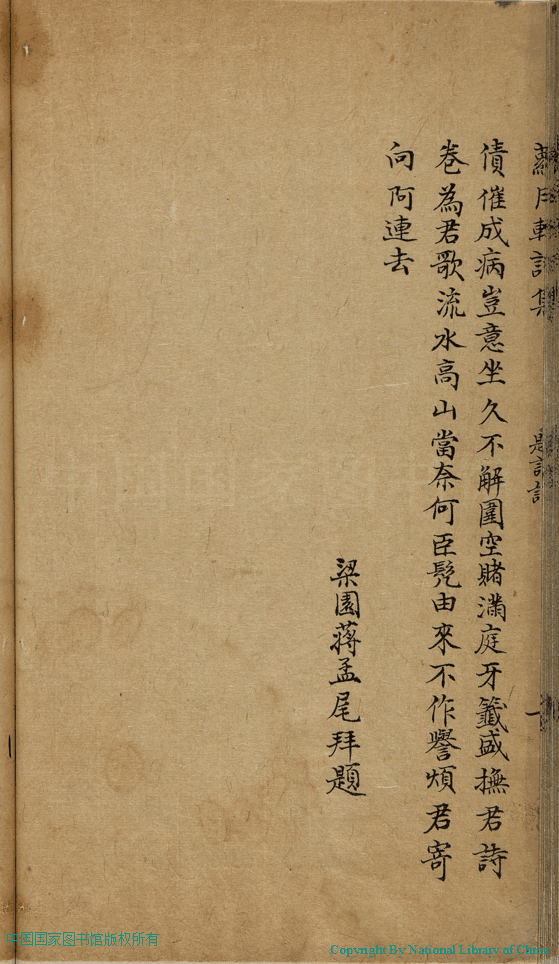 月軒詩集
一
債催成病豈意坐久不解圍空賭滿庭牙籤盛撫君詩
卷為君歌流水高山當奈何臣髡由來不作譽煩君寄
向阿連去
梁園蔣孟尾拜題
中国国家图书馆版权所有
Copyright By National Library of China